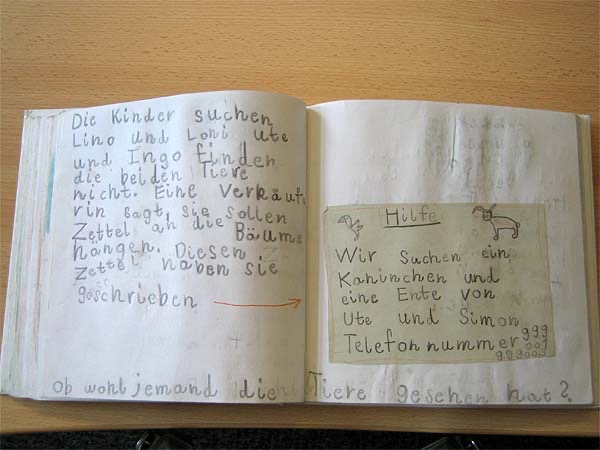 Die Kinder suchen
Lino und Loni. Ute
und Ingo finden
die beiden Tiere
nicht. Eine Verkäufe
rin sagt, sie sollen
Zettel an die Bäume
hängen. Diesen
Zettel haben sie
geschrieben
Hilfe
Wir Suchen ein
Kaninchen und
eine Ente von
Ute und Simon
Telefonnummer 999
001
999003
Ob wohl jemand die Tiere gesehen hat?